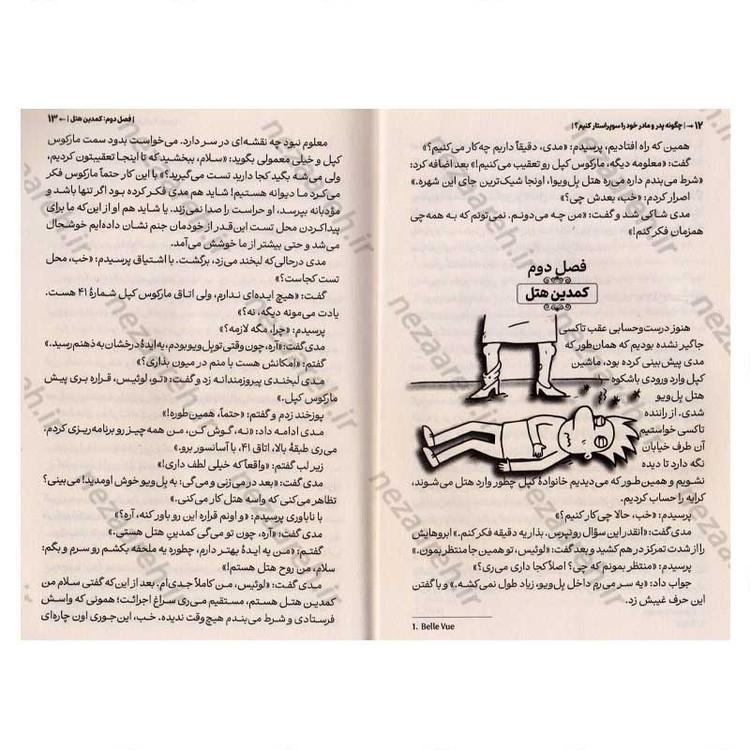 ۱۲ ← | چگونه پدر و مادر خود را سوپراستار کنیم؟ |
همین که راه افتادیم، پرسیدم: «مدی، دقیقاً داریم چه‌کار می‌کنیم؟»
گفت: «معلومه دیگه، مارکوس کپل رو تعقیب می‌کنیم!» بعد اضافه کرد:
«شرط می‌بندم داره می‌ره هتل پل‌ویو۱، اونجا شیک‌ترین جای این شهره.»
اصرار کردم: «خب، بعدش چی؟»
مدی شاکی شد و گفت: «من چه می‌دونم. نمی‌تونم که به همه‌چی
همزمان فکر کنم!»
فصل دوم
کمدین هتل
هنوز درست‌وحسابی عقب تاکسی
جاگیر نشده بودیم که همان‌طور که
مدی پیش‌بینی کرده بود، ماشین
کپل وارد ورودی باشکوه
هتل پل‌ویو
شدی. از راننده
تاکسی خواستیم
آن طرف خیابان
نگه دارد تا دیده
نشویم و همین‌طور که می‌دیدیم خانوادهٔ کپل چطور وارد هتل می‌شوند،
کرایه را حساب کردیم.
پرسیدم: «خب، حالا چی‌کار کنیم؟»
مدی گفت: «انقدر این سؤال رو نپرس. بذار یه دقیقه فکر کنم.» ابروهایش
را از شدت تمرکز در هم کشید و بعد گفت: «لوئیس، تو همین جا منتظر بمون.»
پرسیدم: «منتظر بمونم که چی؟ اصلاً کجا داری می‌ری؟»
جواب داد: «یه سر می‌رم داخل پل‌ویو، زیاد طول نمی‌کشه.» و با گفتن
این حرف غیبش زد.
1. Belle Vue
| فصل دوم: کمدین هتل | ← ۱۳
معلوم نبود چه نقشه‌ای در سر دارد. می‌خواست بدود سمت مارکوس
کپل و خیلی معمولی بگوید: «سلام، ببخشید که تا اینجا تعقیبتون کردیم،
ولی می‌شه بگید کجا دارید تست می‌گیرید؟» با این کار حتماً مارکوس فکر
می‌کرد ما دیوانه هستیم! شاید هم مدی فکر کرده بود اگر تنها باشد و
مؤدبانه بپرسد، او حراست را صدا نمی‌زند. یا شاید هم او از این‌که ما برای
پیدا کردن محل تست این‌قدر از خودمان جنم نشان داده‌ایم خوشحال
می‌شد و حتی بیشتر از ما خوشش می‌آمد.
مدی درحالی‌که لبخند می‌زد، برگشت. با اشتیاق پرسیدم: «خب، محل
تست کجاست؟»
گفت: «هیچ ایده‌ای ندارم، ولی اتاق مارکوس کپل شمارهٔ ۴۱ هست.
یادت می‌مونه دیگه، نه؟»
پرسیدم: «چرا، مگه لازمه؟»
مدی گفت: «آره، چون وقتی تو پل‌ویو بودم، یه ایدهٔ درخشان به ذهنم رسید.»
گفتم: «امکانش هست با منم در میون بذاری؟»
مدی لبخندی پیروزمندانه زد و گفت: «تو، لوئیس، قراره بری پیش
مارکوس کپل.»
پوزخند زدم و گفتم: «حتماً، همین‌طوره!»
مدی ادامه داد: «نه، گوش کن، من همه چیز رو برنامه‌ریزی کردم.
می‌ری طبقهٔ بالا، اتاق ۴۱، با آسانسور برو.»
زیر لب گفتم: «واقعاً که خیلی لطف داری!»
مدی گفت: «بعد در می‌زنی و می‌گی: به پل‌ویو خوش اومدید! می‌بینی؟
تظاهر می‌کنی که واسه هتل کار می‌کنی.»
با ناباوری پرسیدم: «و اونم قراره این رو باور کنه، آره؟»
مدی گفت: «آره، چون تو می‌گی کمدین هتل هستی.»
گفتم: «من یه ایدهٔ بهتر دارم، چطوره یه ملحفه بکشم رو سرم و بگم:
سلام، من روح هتل هستم!»
مدی گفت: «لوئیس، من کاملاً جدی‌ام. بعد از این‌که گفتی سلام من
کمدین هتل هستم، مستقیم می‌ری سراغ اجرائت؛ همونی که واسش
فرستادی و شرط می‌بندم هیچ‌وقت ندیده. خب، این‌جوری اون چاره‌ای
nezaareh.ir